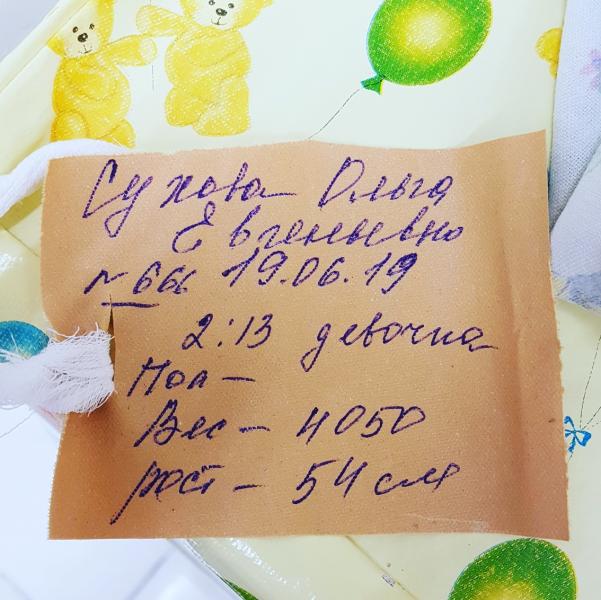 Сухова Ольга
Евгеньевна
№ 666 19.06.19
2:13 девочка
Пол —
Вес — 4050
рост — 54 см